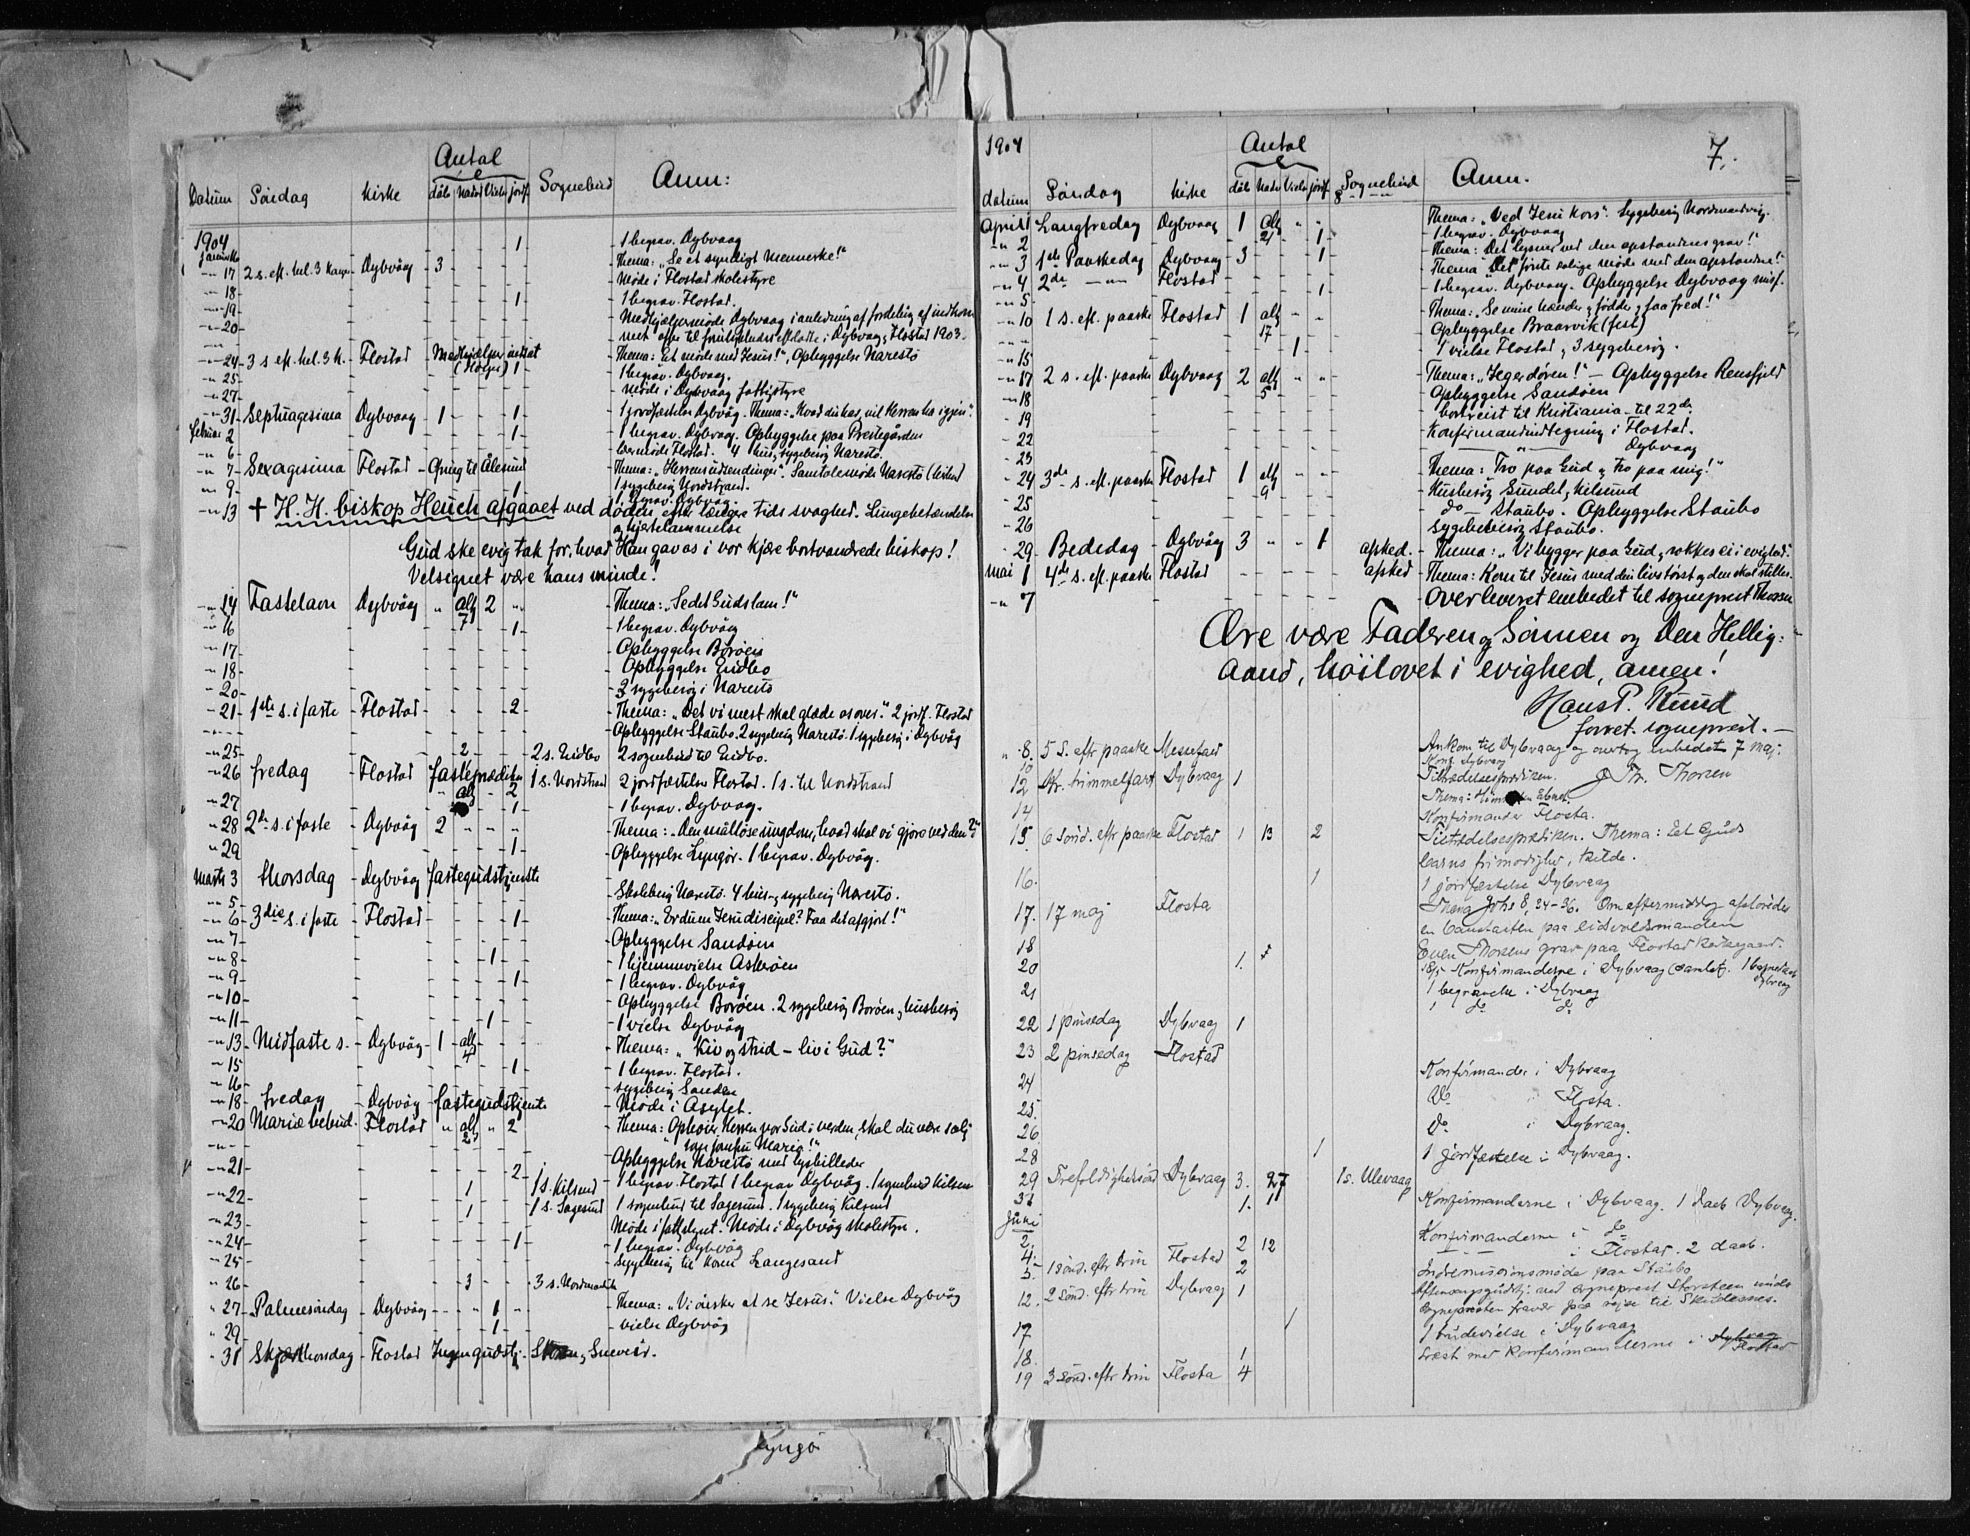 Antal
Datum Söndag Kirke dåb Nadv Vielse jordf. Sognebud Anm:
1904
1 1 begrav. Dybvaag
17 2 s. eft. hel. 3 kong. Dybvåg 3 Thema: "Se et syndigt Menneske!"
18 Möde i Flostad skolestyre
19 1 1 begrav. Flostad.
20 Medhjælpermöde Dybvaag i anledning af fordeling af indkom
24 3 s. eft. hel. 3 k. Flostad Thema: "Et möde med Jesus!", Opbyggelse Narestö
25 1 1 begrav. Dybvaag.
27 Möde i Dybvaag fattigstyre
31 Septuagesima Dybvaag 1 1 1 jordfæstelse Dybvåg. Thema: "Hvad du har, vil Herren ha igjen".
Februar 2 1 1 begrav. Dybvaag. Opbyggelse paa Prestegården
6
7 Sexagesima Flostad Ofring til Ålesund Thema: "Herrens udsendinger". Samtalemöde Narestö
9 1 1 sygebesög Nordstrand.
1 begrav. Dybvåg.
13 + H. H. biskop Heuch afgaaet ved döden efter længre tids svaghed. Lungebetændelse
og hjertelammelse
Gud ske evig tak for, hvad Han gav os i vor kjære bortvandrede biskop!
Velsignet være hans minde!
14 Fastelavn Dybvåg " alg 7 2 " Thema: "Se det Guds lam!"
16 1 1 begrav. Dybvåg
17 Opbyggelse Boröen
18 Opbyggelse Eidbo
20 3 sygebesög i Narestö
21 1ste s. i faste Flostad 2 Thema: "Det vi mest skal glæde os over." 2 jordf. Flostad
Opbyggelse Staubo. 2 sygebesög Narestö. 1 sygebesög i Dybvåg
25 2 2 s. Eidbo 2 sognebud til Eidbo.
26 fredag Flostad fasteprædiken 1 s. Nordstrand 2 jordfæstelser Flostad. 1 s. til Nordstrand
" alg " 2
27 1 1 begrav. Dybvaag.
28 2den s. i faste Dybvåg 2 " " " Thema: "Den mållöse ungdom, hvad skal vi gjöre ved den?"
29 1 Opbyggelse Lyngör. 1 begrav. Dybvåg.
Marts 3 thorsdag Dybvåg fastegudstjeneste
5 Skolebesög Narestö. 4 hus- og sygebesög Narestö.
6 3die s. i faste Flostad 1 Thema: "Er du en Jesu discipel? Faa det afgjort!"
7 Opbyggelse Sandöen
8 1 1 hjemmevielse Askeröen
9 1 1 begrav. Dybvåg
10 Opbyggelse Boröen. 2 sygebesög Boröen, husbesög
11 1 1 vielse Dybvåg
13 Midfaste s. Dybvåg 1 alg 4 Thema: "Kiv og strid – liv i Gud?"
15 1 1 begrav. Flostad.
16 sygebesög Sanden
18 fredag Dybvåg fastegudstjeneste Möde i Asylet.
20 Mariæ bebud. Flostad " alg " 2
Opbyggelse Narestö med lysbilleder
21 2 1 s. Kilsund 1 begrav. Flostad 1 begrav Dybvåg. 1 sognebud Kilsund
22 1 1 s. Sagesund 1 sognebud til Sagesund. 1 sygebesög Kilsund
23 Möde i fattigstyret. Möde i Dybvåg skolestyre.
24 1 1 begrav. Dybvåg
25 Sygebesög til Langesand
26 3 3 s.
27 Palmesöndag Dybvåg 1 " Thema: "Vi önsker at se Jesus". Vielse Dybvåg
29 1 vielse Dybvåg
31 Skjærthorsdag Flostad Ingen gudstj. Storm, Sneveir.
1904 Antal 7.
datum Söndag Kirke dåb Nadv Vielse jordf. Sognebud Anm.
April 1 Langfredag Dybvaag 1 alg 21 " " Thema: "Ved Jesu Kors". Sygebesög Nordmandvig.
2 1 1 begrav. Dybvaag
3 1ste Paaskedag Dybvaag 3 1 Thema: "Det lysner ved den opstandnes grav!"
4 2den Flostad Thema "Det förste salige möde med den opstandne!"
5 1 1 begrav. Dybvaag. Opbyggelse Dybvaag misf.
10 1 s. eft. paaske Flostad 1 alg 17 " " Thema: "Se mine hænder og födder, og faa fred!"
Opbyggelse Braarvik (fest)
15 1 1 vielse Flostad, 3 sygebesög.
17 2 s. eft. paaske Dybvaag 2 alg 5 " " Thema: "Jeg er dören!" – Opbyggelse Rensfjeld
18 Opbyggelse Sandöen
19 bortreist til Kristiania til 22de.
22 Konfirmandindtegning i Flostad.
23 Dybvaag
24 3de s. eft. paaske Flostad 1 alg 9 " " Thema: "Tro paa Gud og tro paa mig!"
25 Husbesög Sundet, Kilsund
do – Staubo. Opbyggelse Staubo
26 Sygebesög Staubo.
29 Bededag Dybvåg 3 " " 1 afsked. Thema: "Vi bygger paa Gud, rokkes ei i evighed".
mai 1 4de s. eft. paaske Flostad afsked Thema: Kom til Jesus med din livstörst og den skal stilles.
7 Overleveret embedet til sogneprest Thorsen
Ære være Faderen og Sönnen og Den Hellig-
aand, höilovet i evighed, amen!
Hans P. Ruud
forret. sogneprest.
" 8. 5 S. eftr paaske Messefald Ankom til Dybvaag og overtog embedet 7 maj.
10 Konf. Dybvaag J Th. Thorsen
12 Kr. himmelfart Dybvaag 1 Tiltrædelsesprædiken.
14 Konfirmander Flosta.
15. 6 sönd. eftr paaske Flostad 1 13 2 Tiltrædelsesprædiken. Thema: Et Guds
barns frimodighed, kilde.
16. 1 1 jordfæstelse Dybvaag
17. 17 maj Flosta Thema Johs 8, 34–36. Om eftermiddag aflöredes
en bautasten paa eidsvoldsmanden
18 Even Thorsens grav paa Flostad Kirkegaard.
20 1. 18/5 Konfirmanderne i Dybvaag
21 1 begravelse i Dybvaag
1 do do
22 1 pinsedag Dybvaag 1
23 2 pinsedag Flostad
24 Konfirmander i Dybvaag
25. Do i Flosta.
26 Do i Dybvaag.
28 1 1 jordfæstelse i Dybvaag.
29 Trefoldighedssönd Dybvaag 3. 27 1 s. Ulevaag
31 1. 1 Konfirmanderne i Dybvaag. 1 daab Dybvaag.
Juni
2. Konfirmanderne i do
4. 2 12 i Flostad. 2 daab.
5. 1 sönd. eftr trin Flostad 2 Indremissionsmöde paa Staubo
12. 2 sönd. eftr trin Dybvaag 1
sognepresten fravær paa rejse til Skudesnes.
17 1 1 brudevielse i Dybvaag
18. 1 Læst med Konfirmanderne i Dybvaag Flostad
19 3 sönd. eftr trin Flosta 4
Lyngö